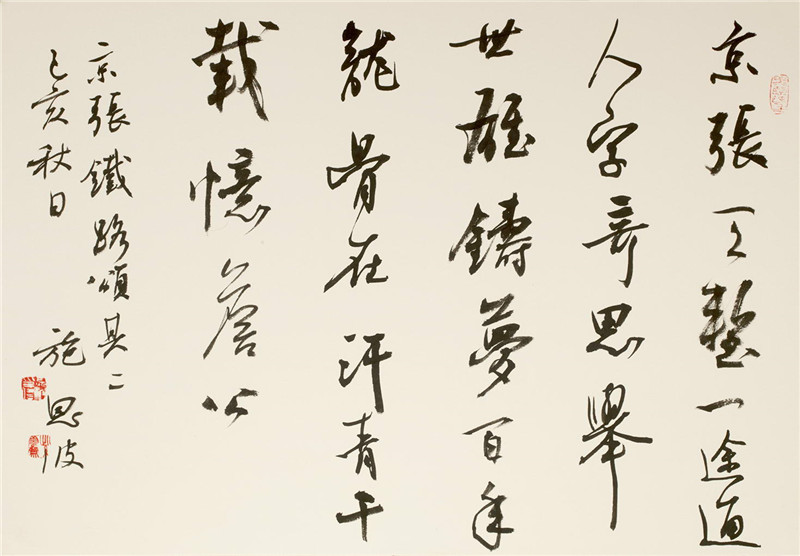 京張天塹一途通
人字奇思舉
世雄鑄夢百年
龍骨在汗青千
載憶詹公
京張鐵路頌其二
己亥秋日
施恩波